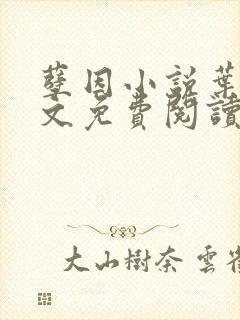 孽因小説葉
文免費閱讀
大山樹奈 雲雀